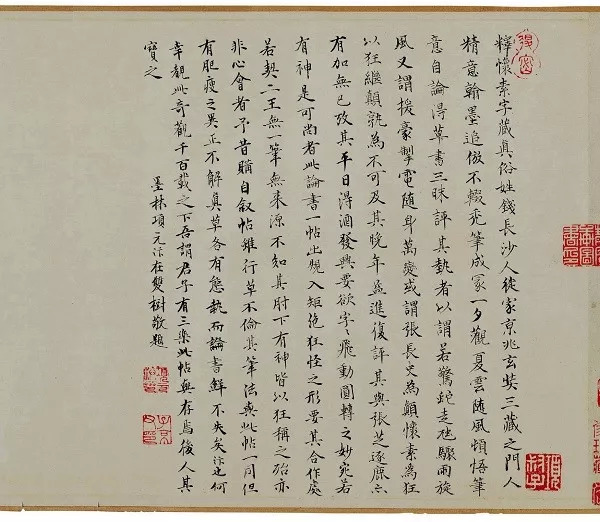 釋懷素字藏真俗姓錢長沙人徙家京兆玄奘三藏之門人
精意翰墨追倣不輟禿筆成冢一夕觀夏雲隨風頓悟筆
意自論得草書三昧評其執者以謂若驚蛇走虺驟雨旋
風又謂援豪掣電隨身萬變或謂張長史為顛懷素為狂
以狂繼顛孰為不可及其晚年益進復評其與張芝逐鹿亦
有加無已攷其平日得酒發興要欲字〻飛動圓轉之妙宛若
有神是可尚者此論書一帖出規入矩絕狂怪之形要其合作處
若契二王無一筆無來源不知其肘下有神皆以狂稱之殆亦
非心會者予昔購自敘帖雖行草不倫其筆法與此帖一同但
有肥瘦之異正不解真草各有態執而論書鮮不失矣汴何
幸覩此奇觀千百載之下吾謂君子有三樂此帖與存焉後人其
寶之
墨林項元汴在雙樹敬題
項叔子
子京父印